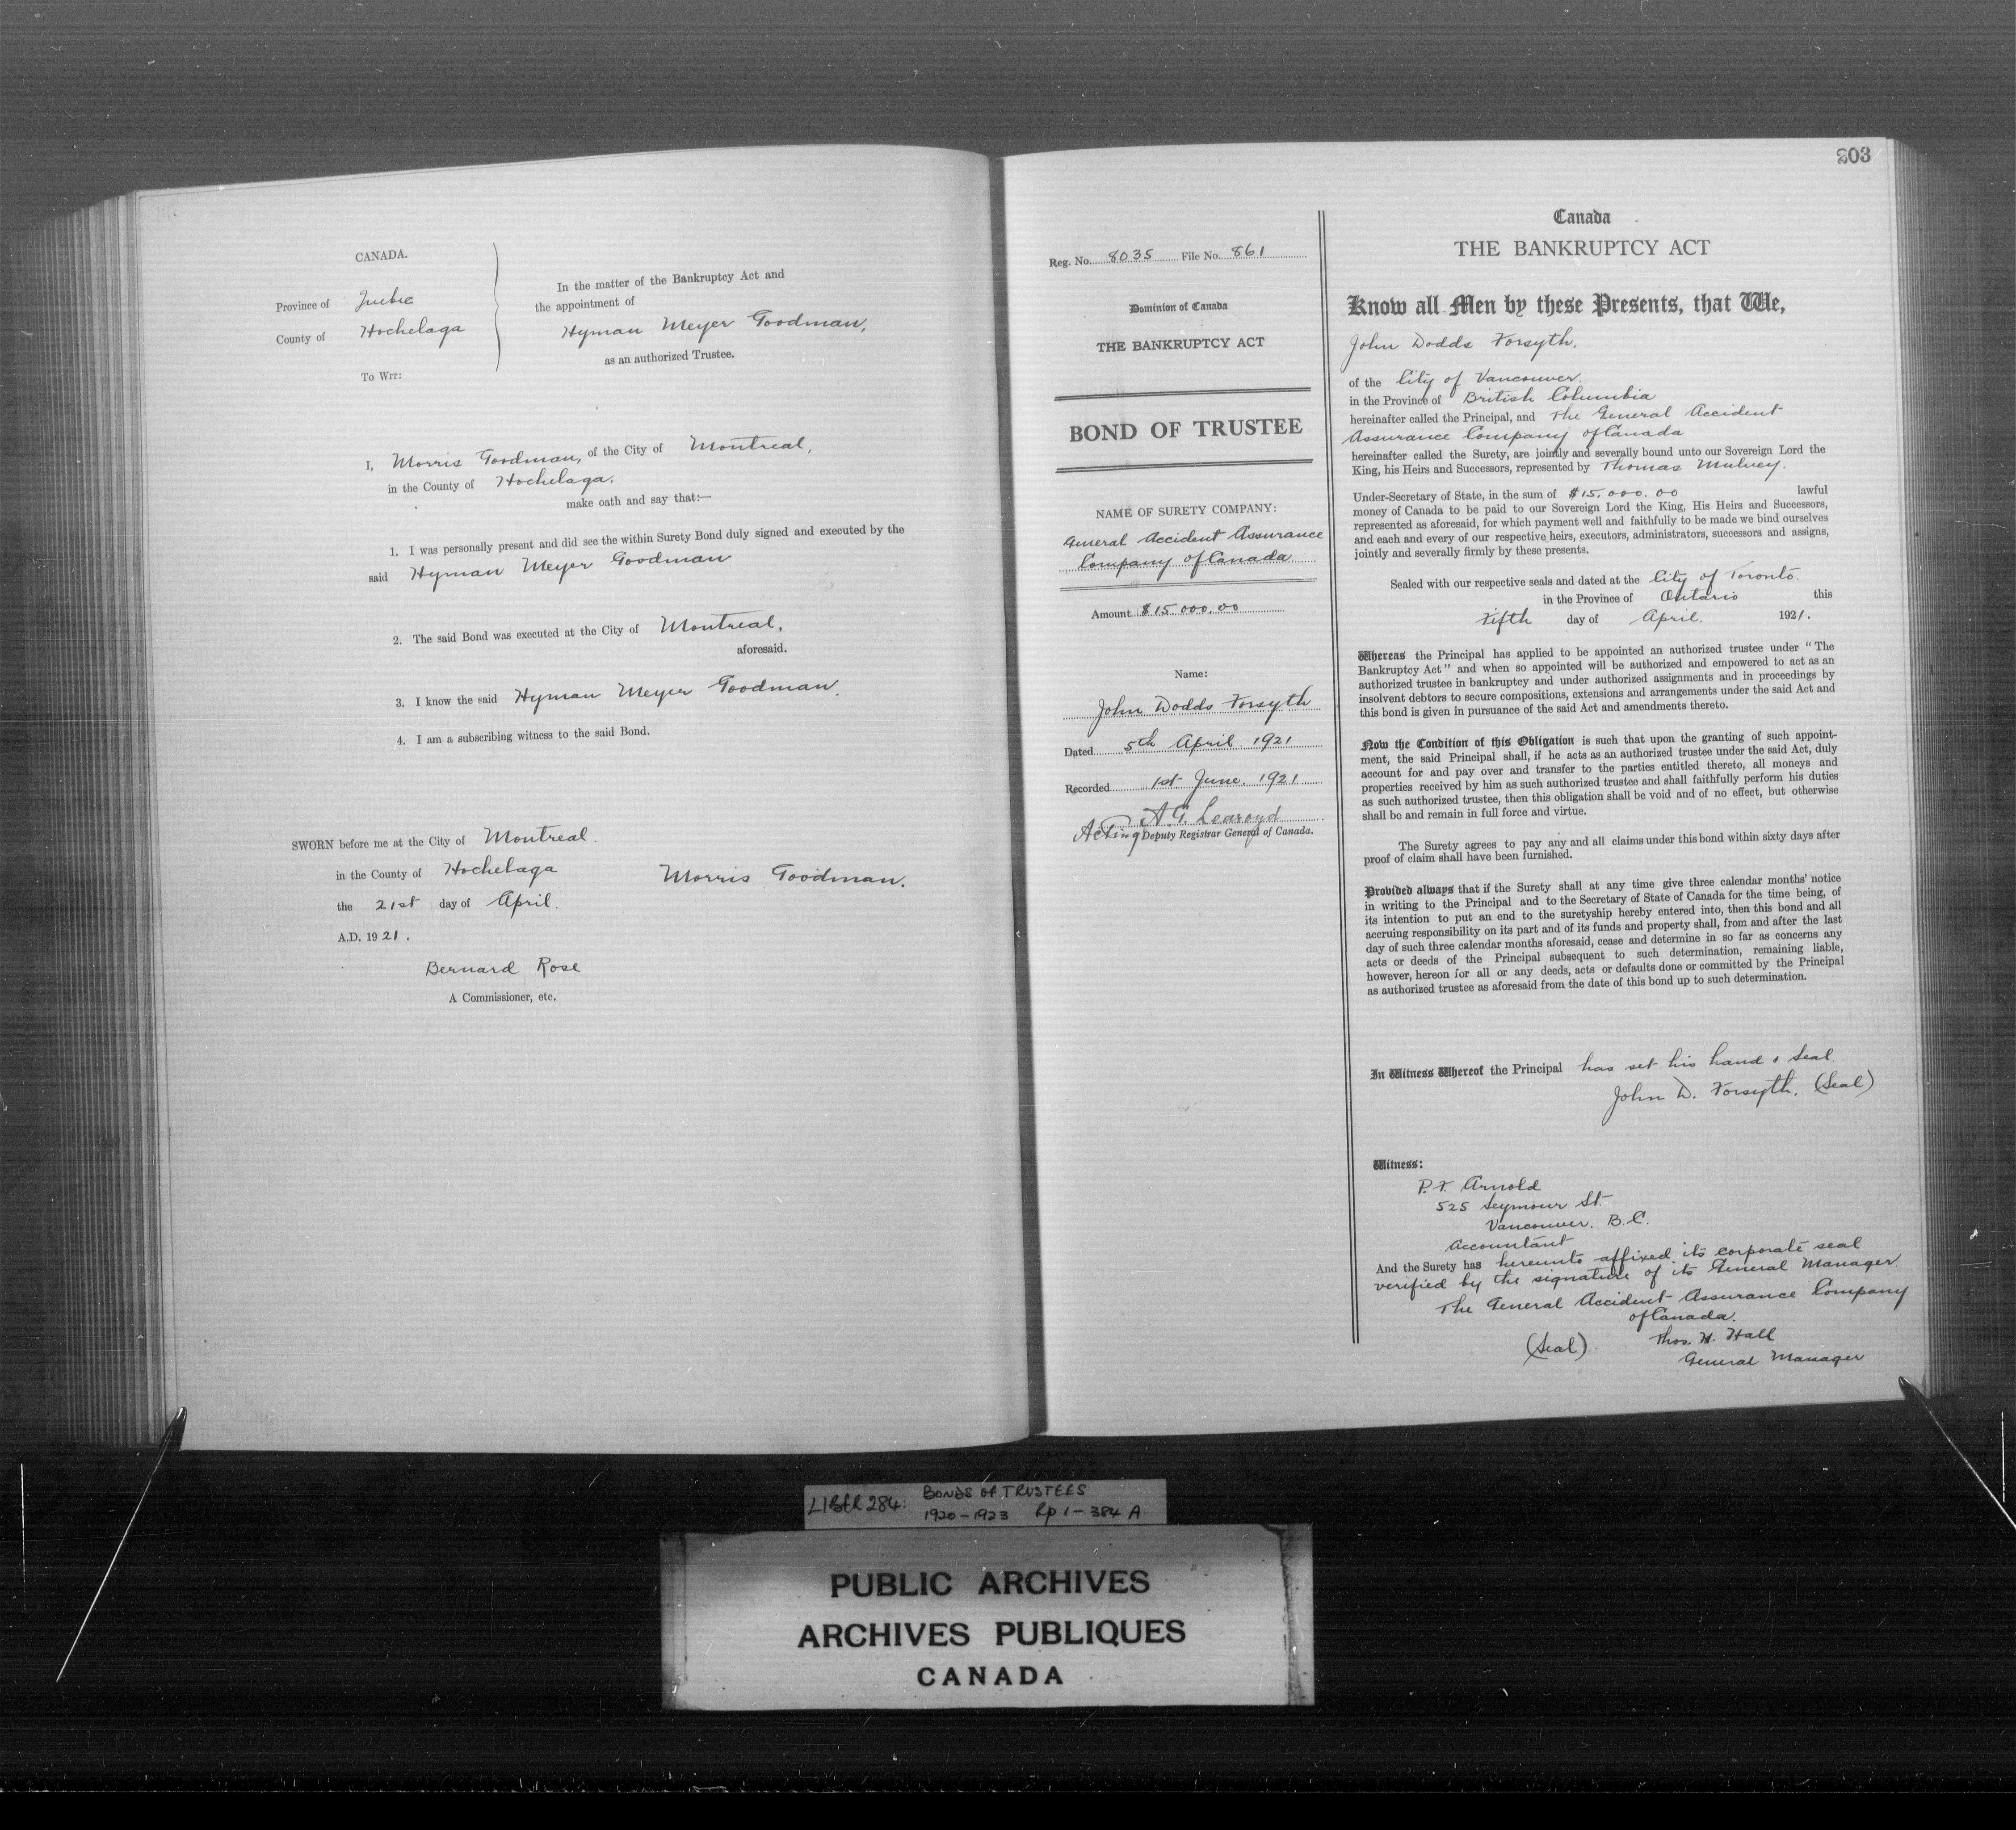 CANADA.
Province of Quebec
County of Hochelaga
To Wit:
In the matter of the Bankruptcy Act and
the appointment of
Hyman Meyer Goodman,
as an authorized Trustee.
I, Morris Goodman, of the City of Montreal,
in the County of Hochelaga.
make oath and say that:—
1. I was personally present and did see the within Surety Bond duly signed and executed by the
said Hyman Meyer Goodman
2. The said Bond was executed at the City of Montreal,
aforesaid.
3. I know the said Hyman Meyer Goodman.
4. I am a subscribing witness to the said Bond.
SWORN before me at the City of Montreal.
in the County of Hochelaga
the 21st day of April.
A.D. 1921.
Morris Goodman.
Bernard Rose
A Commissioner, etc.
203
Reg. No. 8035 File No. 861
Dominion of Canada
THE BANKRUPTCY ACT
BOND OF TRUSTEE
NAME OF SURETY COMPANY:
General Accident Assurance
Company of Canada
Amount $15.000.00
Name:
John Dodds Forsyth
Dated 5th April. 1921
Recorded 1st June. 1921
A G. Learoyd
Acting Deputy Registrar General of Canada.
Canada
THE BANKRUPTCY ACT
Know all Men by these Presents, that We,
John Dodds Forsyth.
of the City of Vancouver.
in the Province of British Columbia
hereinafter called the Principal, and The General Accident
Assurance Company of Canada
hereinafter called the Surety, are jointly and severally bound unto our Sovereign Lord the
King, his Heirs and Successors, represented by Thomas Mulvey.
Under-Secretary of State, in the sum of $15.000.00 lawful
money of Canada to be paid to our Sovereign Lord the King, His Heirs and Successors,
represented as aforesaid, for which payment well and faithfully to be made we bind ourselves
and each and every of our respective heirs, executors, administrators, successors and assigns,
jointly and severally firmly by these presents.
Sealed with our respective seals and dated at the City of Toronto.
in the Province of Ontario this
Fifth day of April. 1921.
Whereas the Principal has applied to be appointed an authorized trustee under "The
Bankruptcy Act" and when so appointed will be authorized and empowered to act as an
authorized trustee in bankruptcy and under authorized assignments and in proceedings by
insolvent debtors to secure compositions, extensions and arrangements under the said Act and
this bond is given in pursuance of the said Act and amendments thereto.
Now the Condition of this Obligation is such that upon the granting of such appoint-
ment, the said Principal shall, if he acts as an authorized trustee under the said Act, duly
account for and pay over and transfer to the parties entitled thereto, all moneys and
properties received by him as such authorized trustee and shall faithfully perform his duties
as such authorized trustee, then this obligation shall be void and of no effect, but otherwise
shall be and remain in full force and virtue.
The Surety agrees to pay any and all claims under this bond within sixty days after
proof of claim shall have been furnished.
Provided always that if the Surety shall at any time give three calendar months' notice
in writing to the Principal and to the Secretary of State of Canada for the time being, of
its intention to put an end to the suretyship hereby entered into, then this bond and all
accruing responsibility on its part and of its funds and property shall, from and after the last
day of such three calendar months aforesaid, cease and determine in so far as concerns any
acts or deeds of the Principal subsequent to such determination, remaining liable,
however, hereon for all or any deeds, acts or defaults done or committed by the Principal
as authorized trustee as aforesaid from the date of this bond up to such determination.
In Witness Whereof the Principal has set his hand & seal
John D. Forsyth. (Seal)
Witness:
P.F. Arnold
525 Seymour St.
Vancouver. B.C.
Accountant
And the Surety has hereunto affixed its corporate seal
verified by the signature of its General Manager.
The General Accident Assurance Company
of Canada.
(Seal) Thos. H. Hall
General Manager
LIBER 284: BONDS OF TRUSTEES
1920-1923 Rp 1-384 A
PUBLIC ARCHIVES
ARCHIVES PUBLIQUES
CANADA